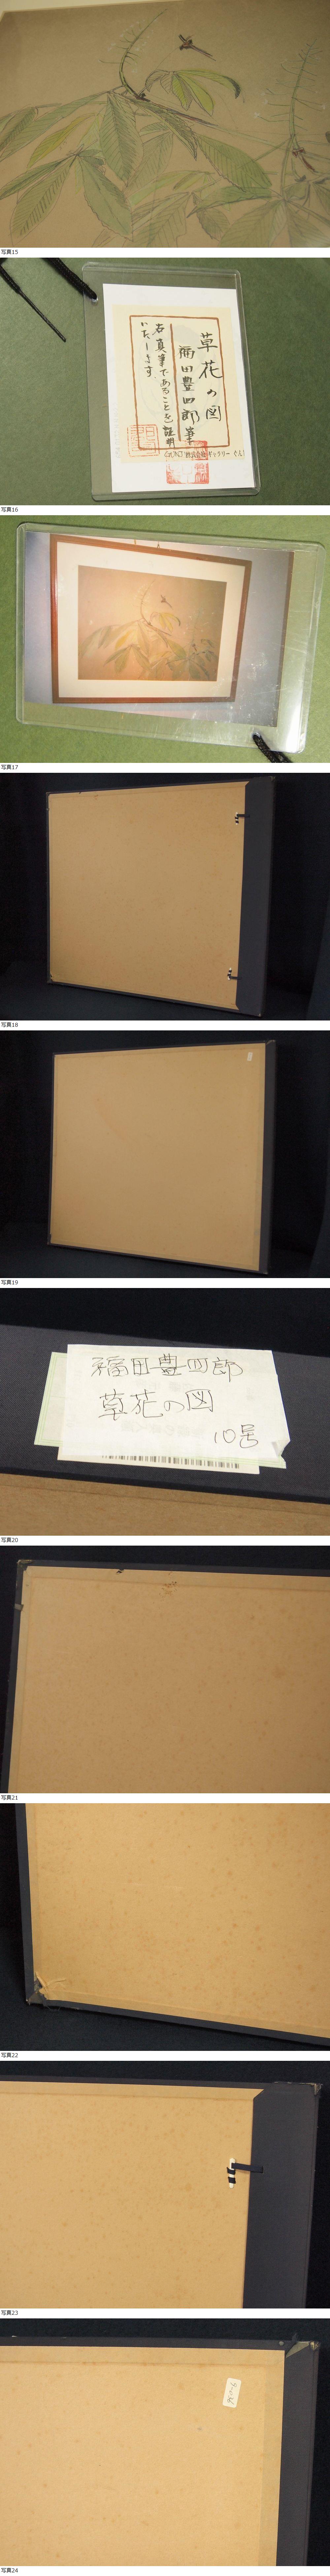 写真15
草花の図
福田豊四郎筆
右真筆であることを証明
いたします
写真16
写真17
写真18
写真19
福田豊四郎
草花の図
10号
写真20
写真21
写真22
写真23
写真24